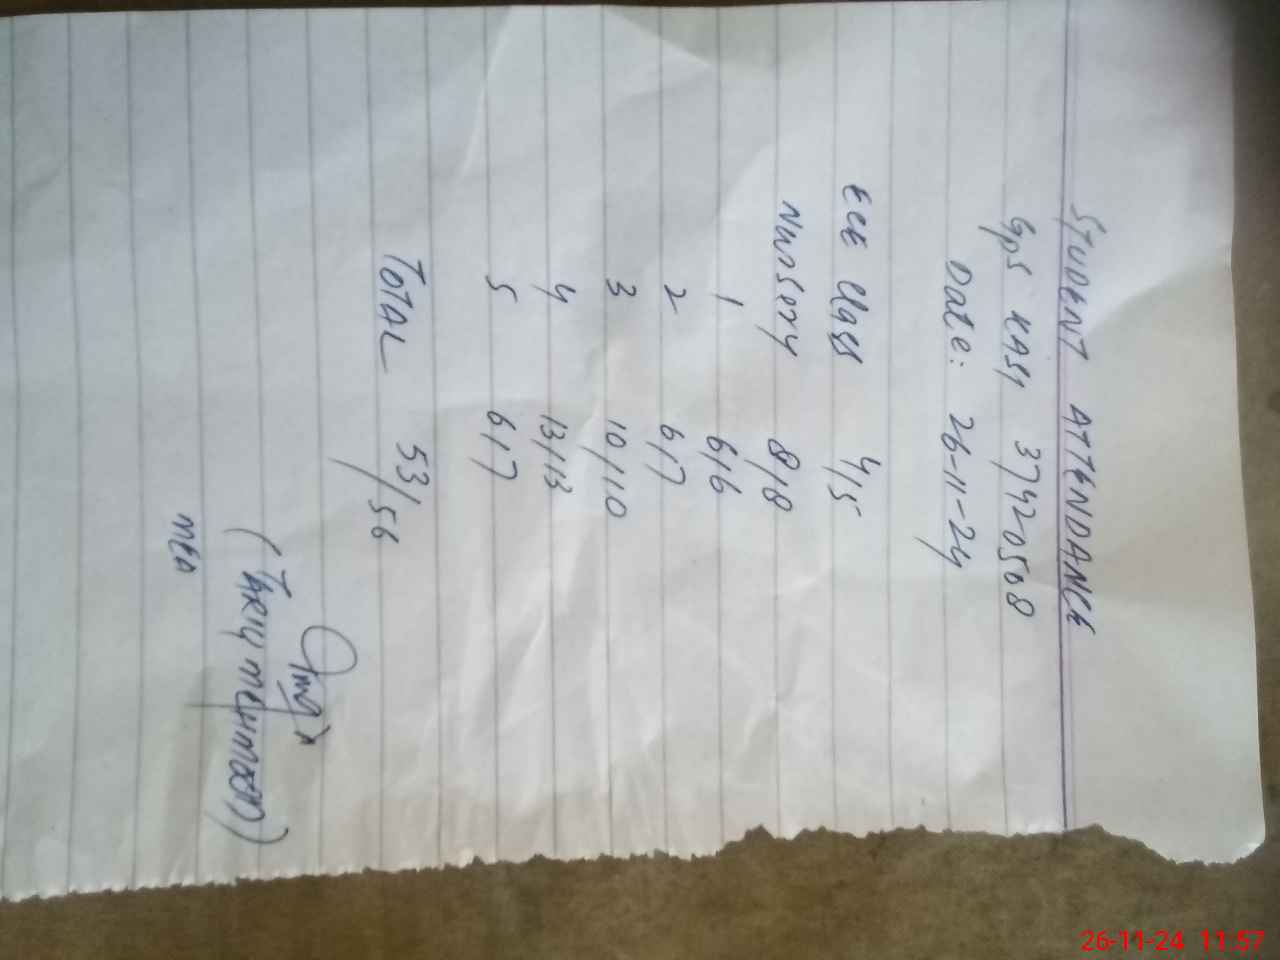 STUDENT ATTENDANCE
GPS KASI 37420508
Date: 26-11-24
ECE Class 4/5
Nursery 8/8
1 6/6
2 6/7
3 10/10
4 13/13
5 6/7
TOTAL 53/56
MEO
26-11-24 11:57